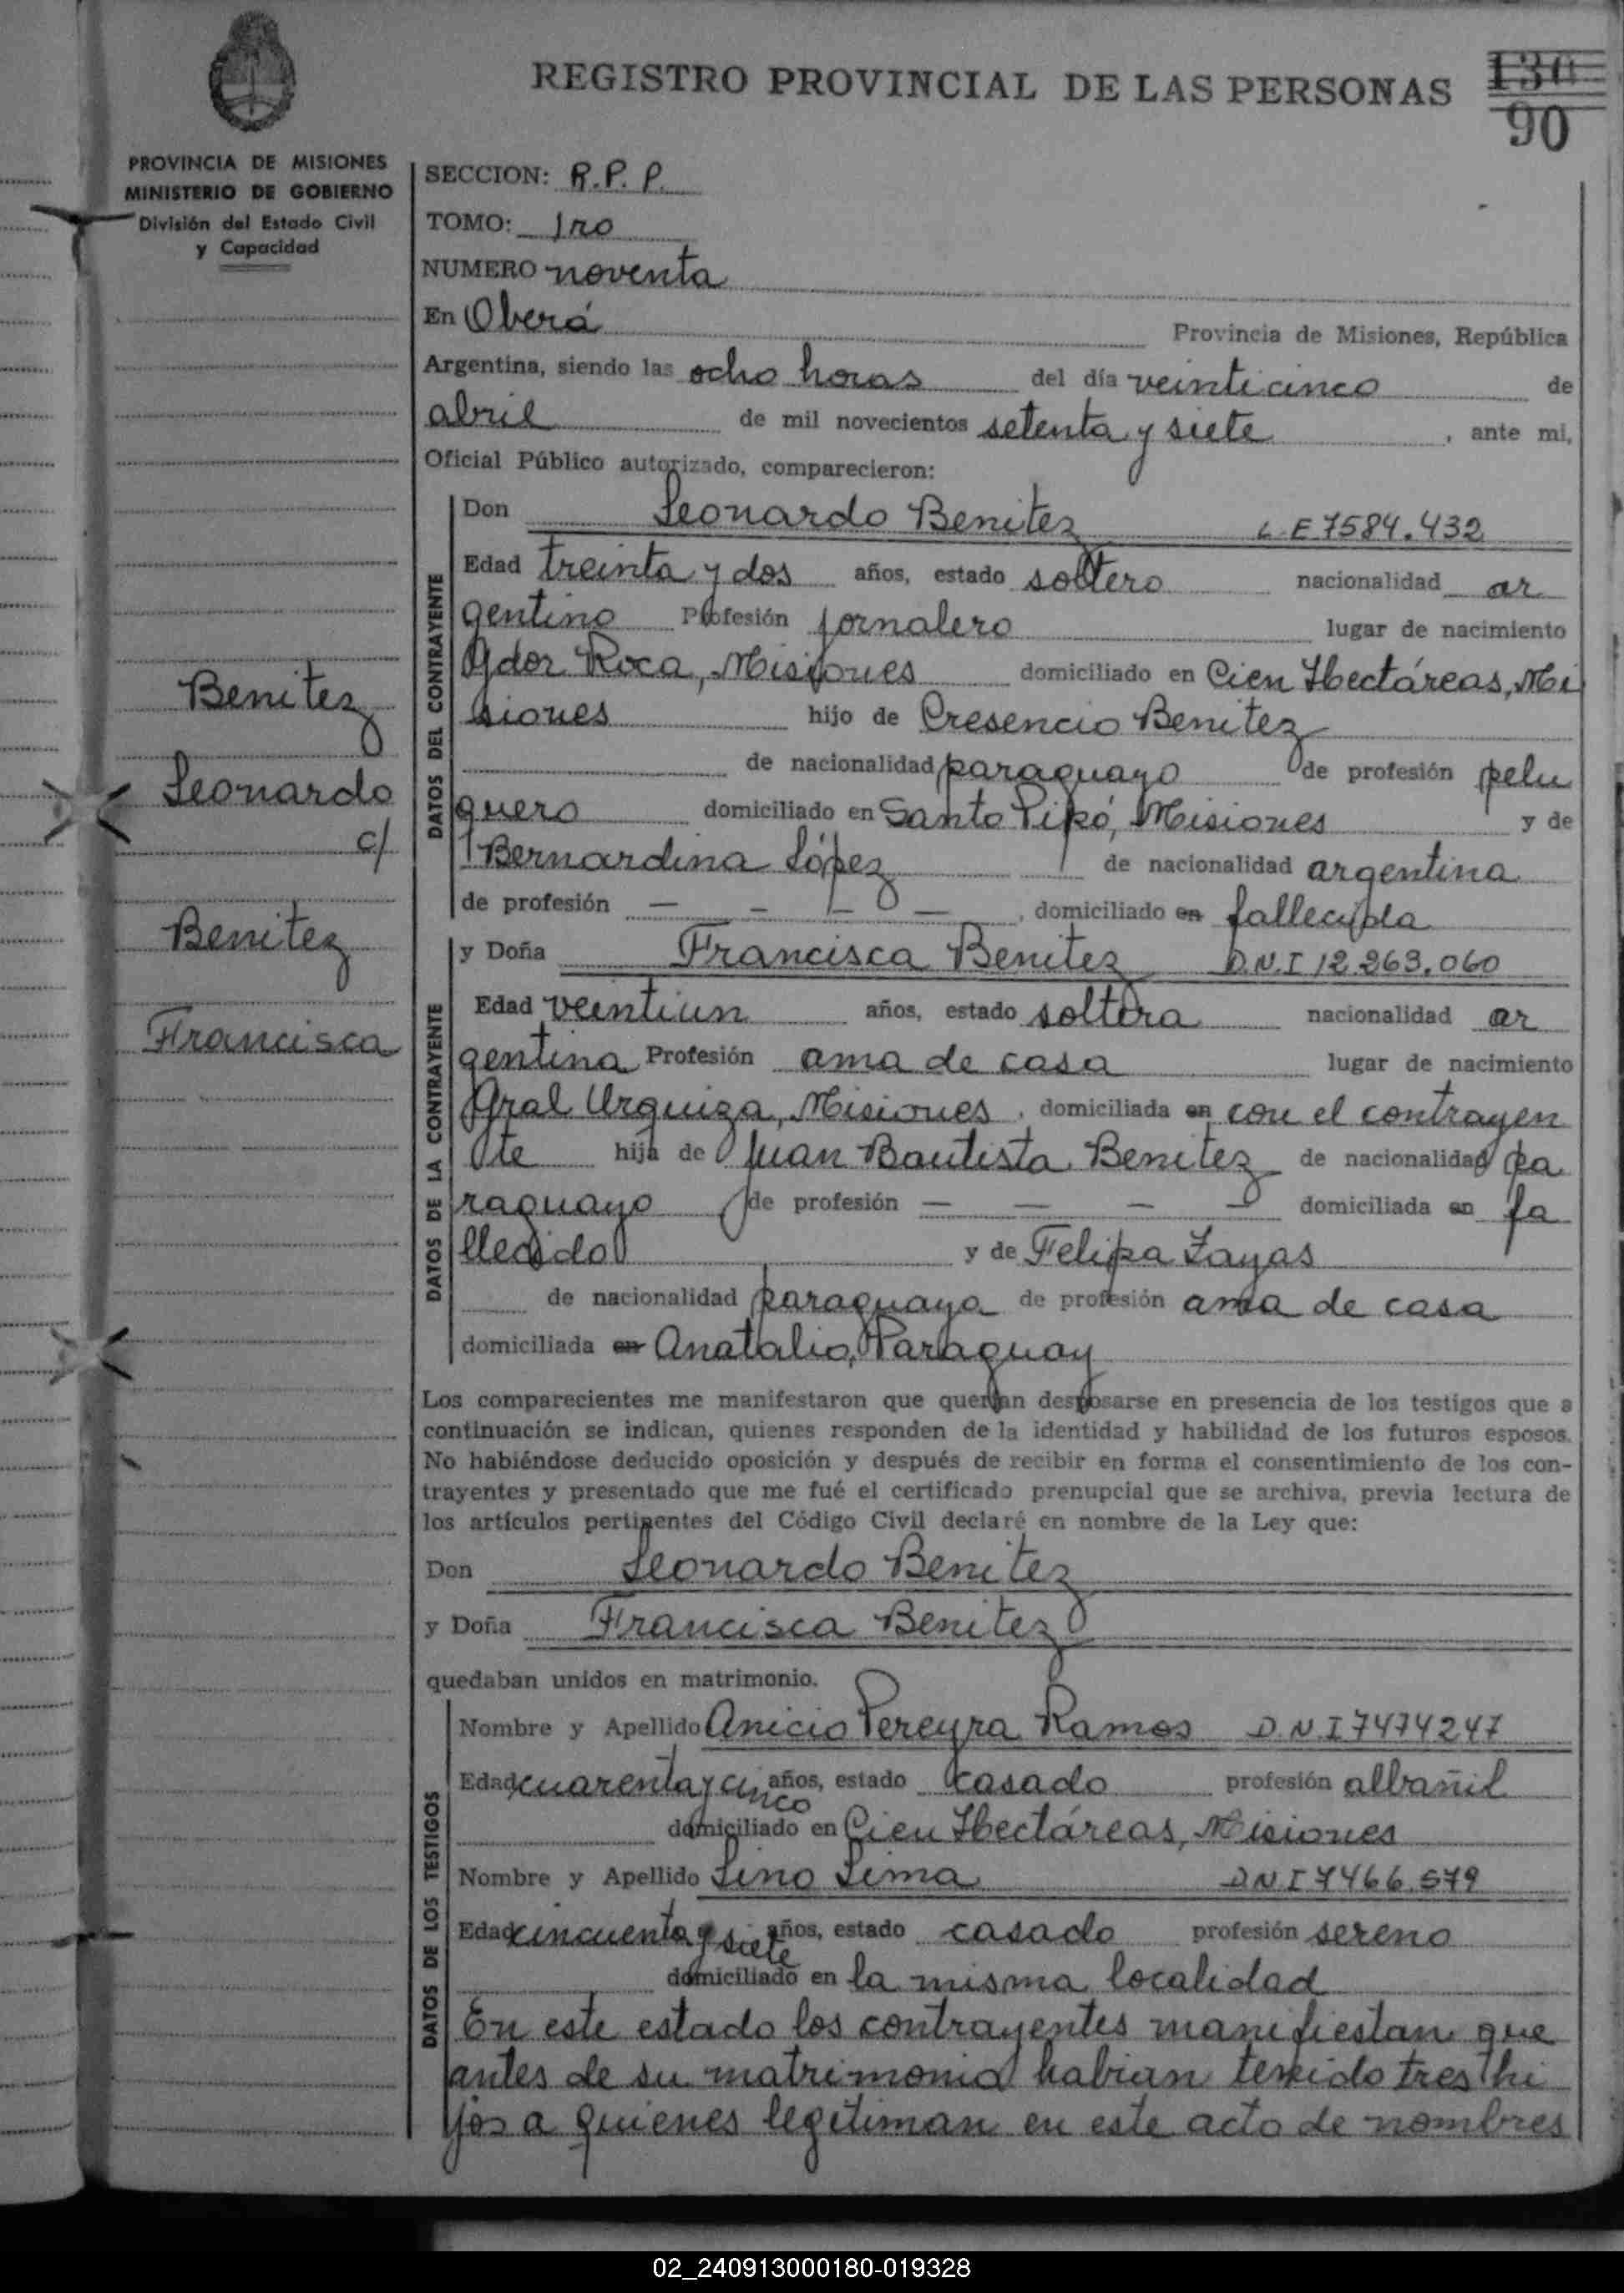 REGISTRO PROVINCIAL DE LAS PERSONAS
130
90
PROVINCIA DE MISIONES
MINISTERIO DE GOBIERNO
División del Estado Civil
y Capacidad
SECCION: R.P.P.
TOMO: 1ro
NUMERO noventa
En Oberá Provincia de Misiones, República
Argentina, siendo las ocho horas del día veinticinco de
abril de mil novecientos setenta y siete, ante mi,
Oficial Público autorizado, comparecieron:
DATOS DEL CONTRAYENTE
Don Leonardo Benitez L.E 7584.432
Edad treinta y dos años, estado soltero nacionalidad ar
gentino Profesión jornalero lugar de nacimiento
Gdor Roca, Misiones domiciliado en Cien Hectáreas, Mi
siones hijo de Cresencio Benitez
de nacionalidad paraguayo de profesión pelu
quero domiciliado en Santo Pipó, Misiones y de
Bernardina López de nacionalidad argentina
de profesión — — — — , domiciliado en fallecida
Benitez
Leonardo
c/
Benitez
Francisca
DATOS DE LA CONTRAYENTE
y Doña Francisca Benitez D.N.I 12.263.060
Edad veintiun años, estado soltera nacionalidad ar
gentina Profesión ama de casa lugar de nacimiento
Gral Urquiza, Misiones, domiciliada en con el contrayen
te hija de Juan Bautista Benitez de nacionalidad pa
raguayo de profesión — — — — domiciliada en fa
llecido y de Felipa Zayas
de nacionalidad paraguaya de profesión ama de casa
domiciliada en Anatalio, Paraguay
Los comparecientes me manifestaron que querían desposarse en presencia de los testigos que a
continuación se indican, quienes responden de la identidad y habilidad de los futuros esposos.
No habiéndose deducido oposición y después de recibir en forma el consentimiento de los con-
trayentes y presentado que me fué el certificado prenupcial que se archiva, previa lectura de
los artículos pertinentes del Código Civil declaré en nombre de la Ley que:
Don Leonardo Benitez
y Doña Francisca Benitez
quedaban unidos en matrimonio.
DATOS DE LOS TESTIGOS
Nombre y Apellido Anicio Pereyra Ramos D.N.I 7474247
Edad cuarenta y cinco años, estado casado profesión albañil
domiciliado en Cien Hectáreas, Misiones
Nombre y Apellido Lino Lima D.N.I 7466.579
Edad cincuenta y siete años, estado casado profesión sereno
domiciliado en la misma localidad
En este estado los contrayentes manifiestan que
antes de su matrimonio habian tenido tres hi
jos a quienes legitiman en este acto de nombres
02_240913000180-019328